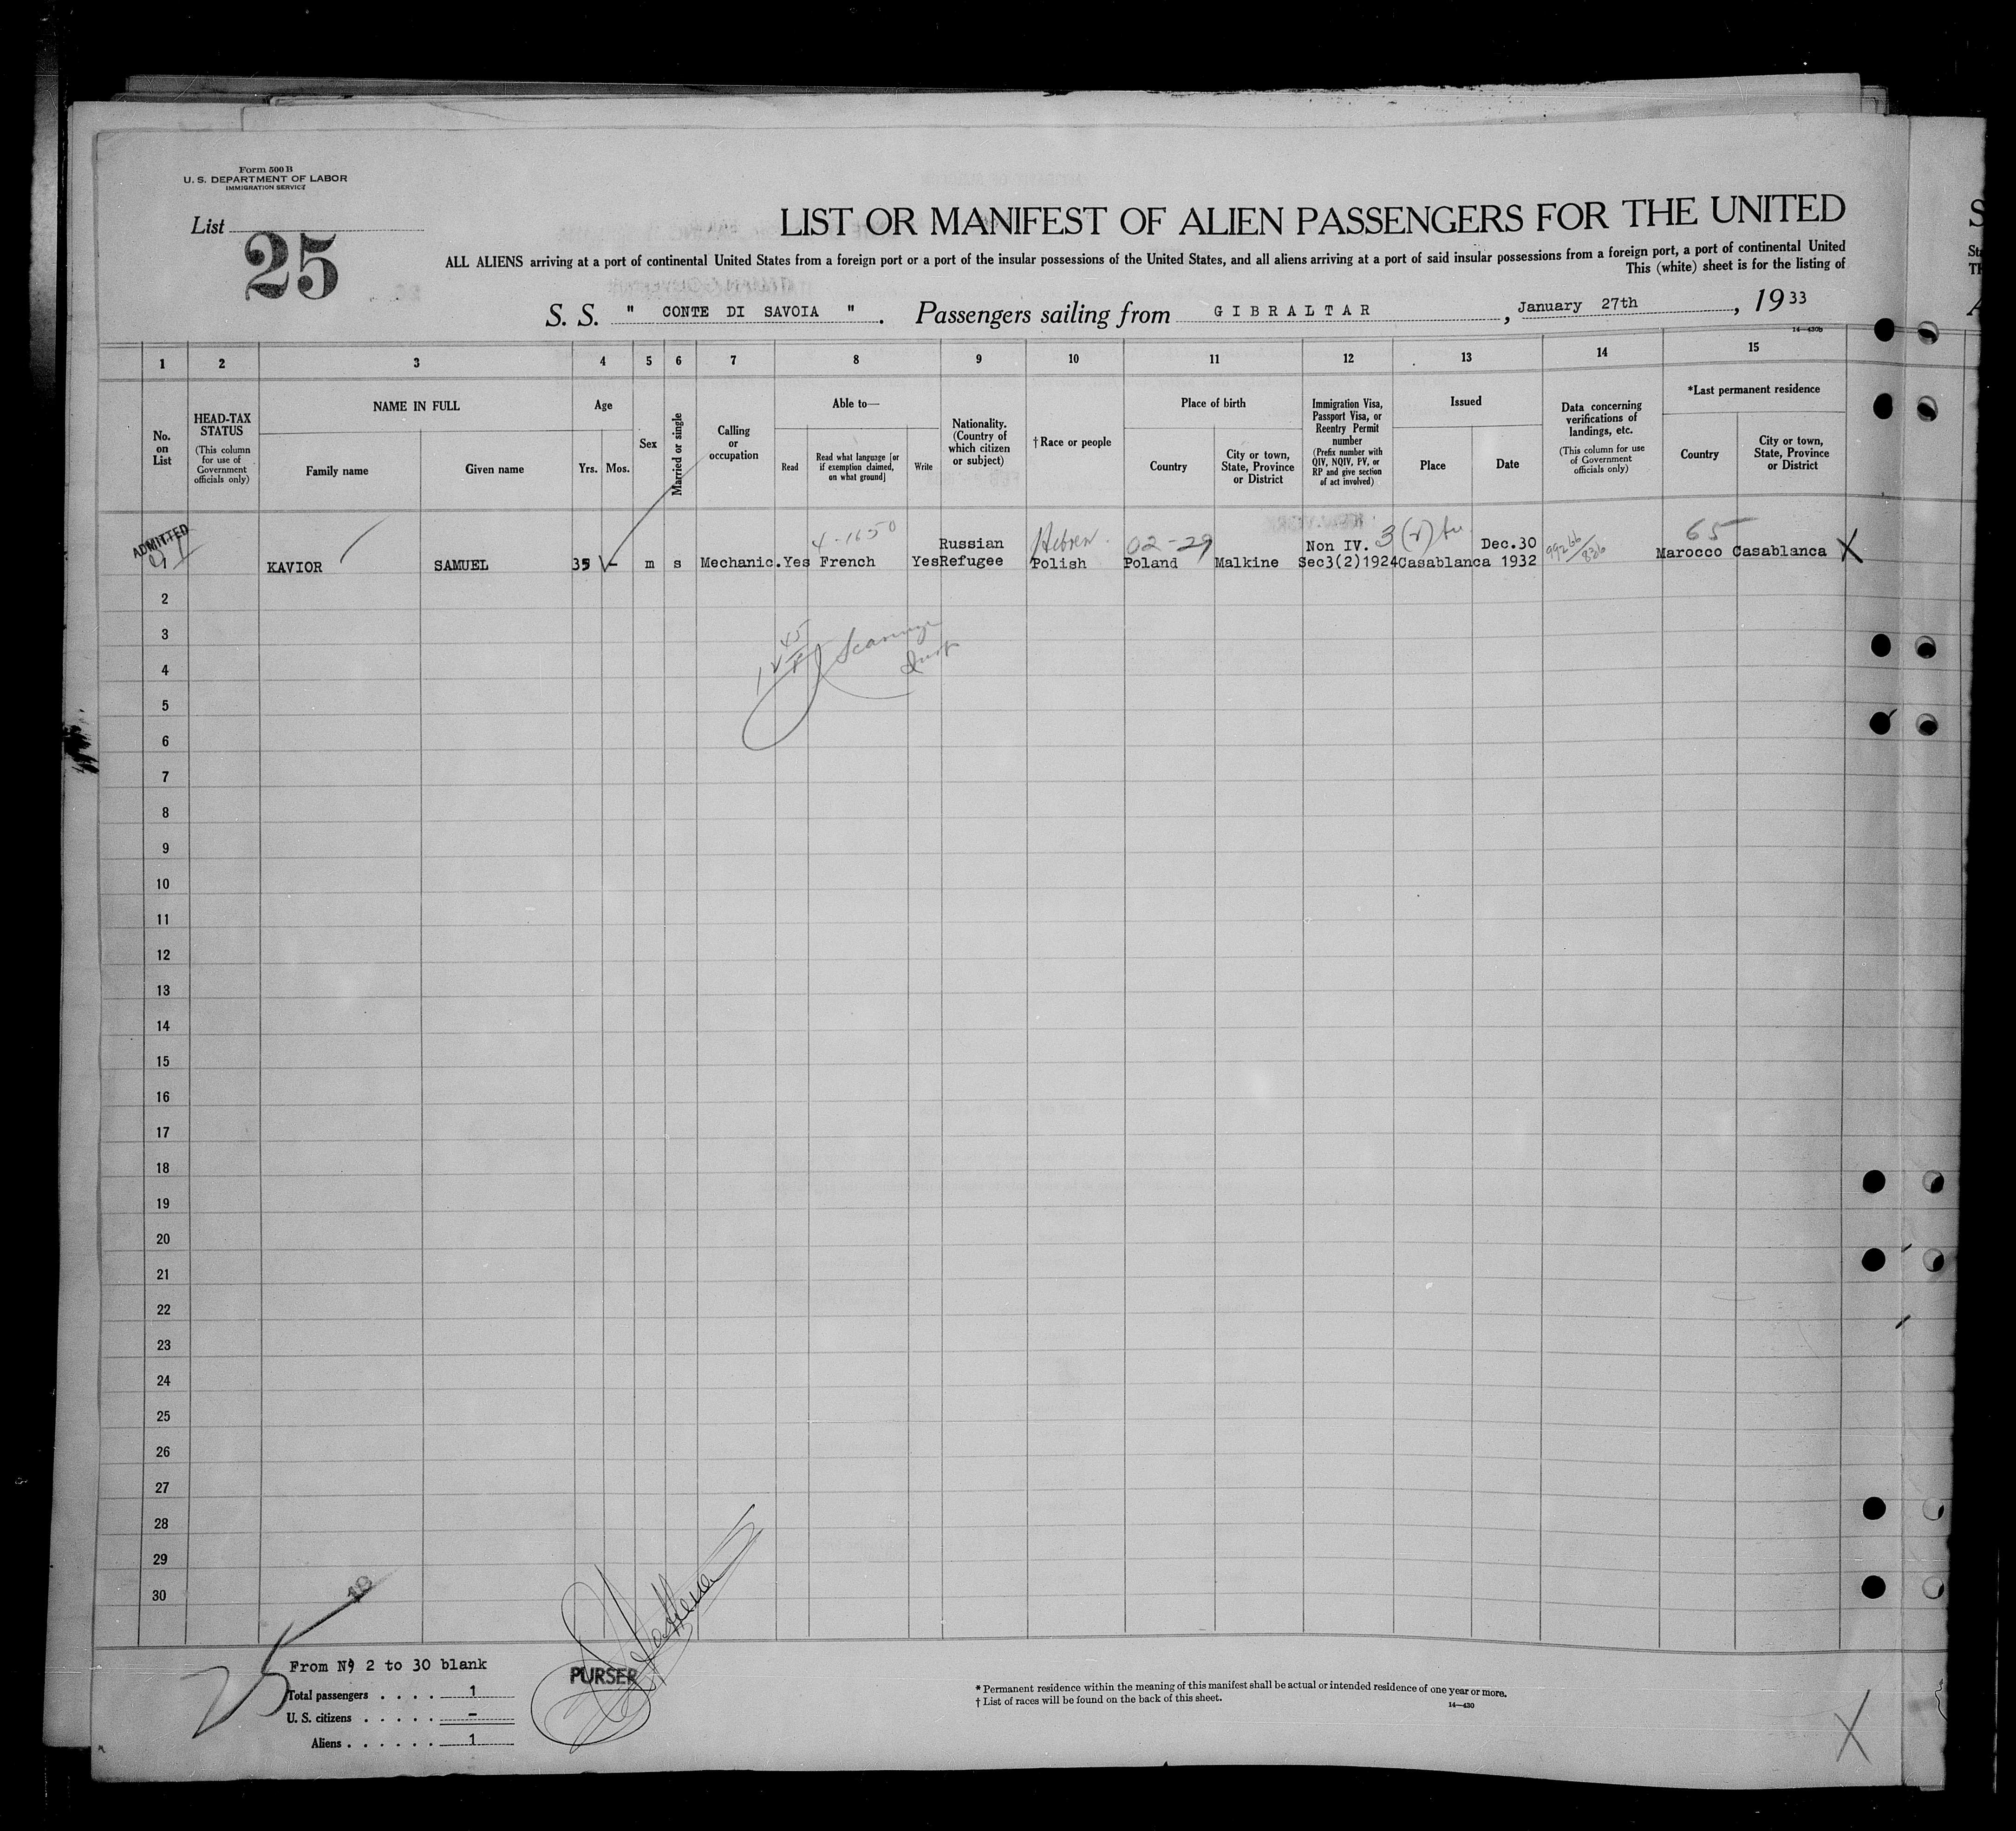 Form 500 B
U. S. DEPARTMENT OF LABOR
IMMIGRATION SERVICE
List
25
LIST OR MANIFEST OF ALIEN PASSENGERS FOR THE UNITED
ALL ALIENS arriving at a port of continental United States from a foreign port or a port of the insular possessions of the United States, and all aliens arriving at a port of said insular possessions from a foreign port, a port of continental United
This (white) sheet is for the listing of
S. S. " CONTE DI SAVOIA ". Passengers sailing from GIBRALTAR, January 27th, 1933
14—430b
1 2 3 4 5 6 7 8 9 10 11 12 13 14 15
No. on List
HEAD-TAX STATUS
(This column for use of Government officials only)
NAME IN FULL
Family name
Given name
Age
Yrs. Mos.
Sex
Married or single
Calling or occupation
Able to—
Read
Read what language [or if exemption claimed, on what ground]
Write
Nationality. (Country of which citizen or subject)
†Race or people
Place of birth
Country
City or town, State, Province or District
Immigration Visa, Passport Visa, or Reentry Permit number
(Prefix number with QIV, NQIV, PV, or RP and give section of act involved)
Issued
Place
Date
Data concerning verifications of landings, etc.
(This column for use of Government officials only)
*Last permanent residence
Country
City or town, State, Province or District
ADMITTED
4-1650
Hebrew
02-29
3(2)
65
99266/836
Russian Non IV. Dec.30
KAVIOR SAMUEL 35 - m s Mechanic. Yes French Yes Refugee Polish Poland Malkine Sec3(2)1924 Casablanca 1932 Marocco Casablanca X
2
3
4
5
6
7
8
9
10
11
12
13
14
15
16
17
18
19
20
21
22
23
24
25
26
27
28
29
30
18
25
From No 2 to 30 blank
Total passengers . . . . 1
U. S. citizens . . . . . -
Aliens . . . . . . 1
PURSER
* Permanent residence within the meaning of this manifest shall be actual or intended residence of one year or more.
† List of races will be found on the back of this sheet.
14—430
X